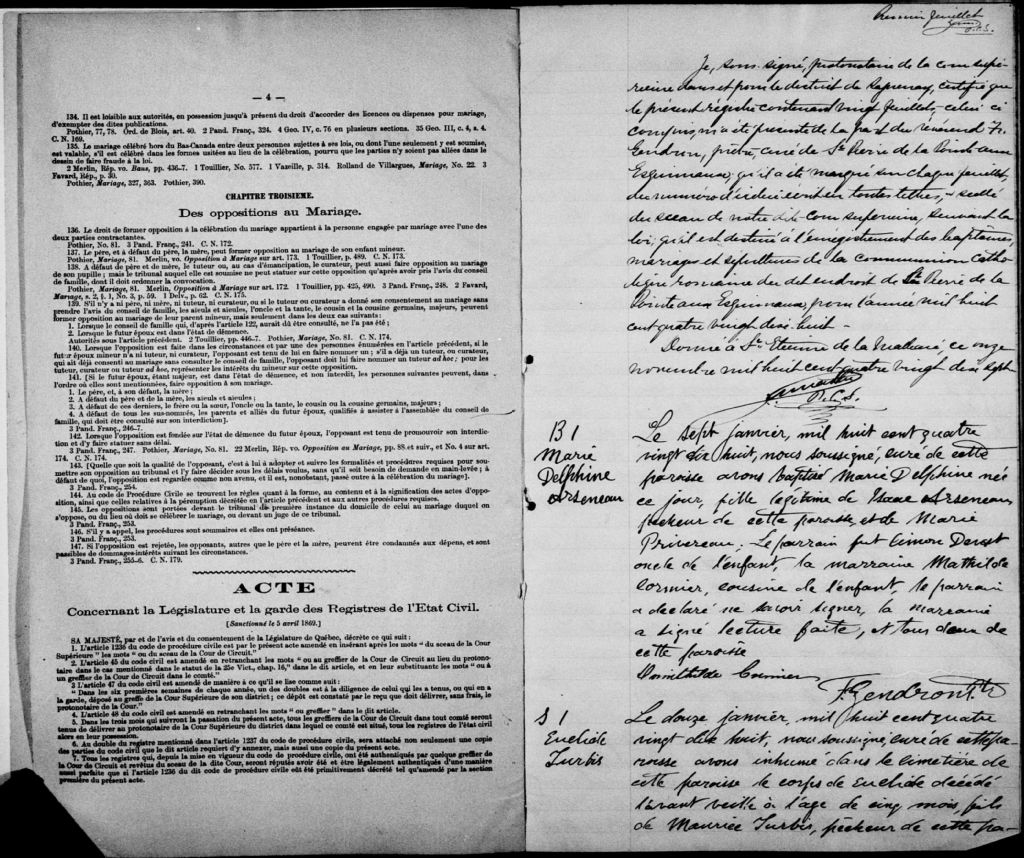 — 4 —
134. Il est loisible aux autorités, en possession jusqu'à présent du droit d'accorder des licences ou dispenses pour mariage,
d'exempter des dites publications.
Pothier, 77, 78. Ord. de Blois, art. 40. 2 Pand. Franç., 324. 4 Geo. IV, c. 76 en plusieurs sections. 35 Geo. III, c. 4, s. 4.
C. N. 169.
135. Le mariage célébré hors du Bas-Canada entre deux personnes sujettes à ses lois, ou dont l'une seulement y est soumise,
est valable, s'il est célébré dans les formes usitées au lieu de la célébration, pourvu que les parties n'y soient pas allées dans le
dessein de faire fraude à la loi.
2 Merlin, Rép. vo. Bans, pp. 436-7. 1 Touillier, No. 577. 1 Vazeille, p. 314. Rolland de Villargues, Mariage, No. 22. 3
Favard, Rép., p. 30.
Pothier, Mariage, 327, 363. Pothier, 390.
CHAPITRE TROISIEME.
Des oppositions au Mariage.
136. Le droit de former opposition à la célébration du mariage appartient à la personne engagée par mariage avec l'une des
deux parties contractantes.
Pothier, No. 81. 3 Pand. Franç., 241. C. N. 172.
137. Le père, et à défaut du père, la mère, peut former opposition au mariage de son enfant mineur.
Pothier, Mariage, 81. Merlin, vo. Opposition à Mariage sur art. 173. 1 Touillier, p. 489. C. N. 173.
138. A défaut de père et de mère, le tuteur ou, au cas d'émancipation, le curateur, peut aussi faire opposition au mariage
de son pupille ; mais le tribunal auquel elle est soumise ne peut statuer sur cette opposition qu'après avoir pris l'avis du conseil
de famille, dont il doit ordonner la convocation.
Pothier, Mariage, 81. Merlin, Opposition à Mariage sur art. 172. 1 Touillier, pp. 425, 490. 3 Pand. Franç., 248. 2 Favard,
Mariage, s. 2, § 1, No. 3, p. 59. 1 Delv., p. 62. C. N. 175.
139. S'il n'y a ni père, ni mère, ni tuteur, ni curateur, ou si le tuteur ou curateur a donné son consentement au mariage sans
prendre l'avis du conseil de famille, les aieuls et aieules, l'oncle et la tante, le cousin et la cousine germains, majeurs, peuvent
former opposition au mariage de leur parent mineur, mais seulement dans les deux cas suivants:
1. Lorsque le conseil de famille qui, d'après l'article 122, aurait dû être consulté, ne l'a pas été ;
2. Lorsque le futur époux est dans l'état de démence.
Autorités sous l'article précédent. 2 Touillier, pp. 446-7. Pothier, Mariage, No. 81. C. N. 174.
140. Lorsque l'opposition est faite dans les circonstances et par une des personnes énumérées en l'article précédent, si le
futur époux mineur n'a ni tuteur, ni curateur, l'opposant est tenu de lui en faire nommer un ; s'il a déjà un tuteur, ou curateur,
qui ait déjà consenti au mariage sans consulter le conseil de famille, l'opposant doit lui faire nommer un tuteur ad hoc ; pour les
tuteur, curateur ou tuteur ad hoc, représenter les intérêts du mineur sur cette opposition.
141. [Si le futur époux, étant majeur, est dans l'état de démence, et non interdit, les personnes suivantes peuvent, dans
l'ordre où elles sont mentionnées, faire opposition à son mariage.
1. Le père, et, à son défaut, la mère ;
2. A défaut du père et de la mère, les aieuls et aieules ;
3. A défaut de ces derniers, le frère ou la sœur, l'oncle ou la tante, le cousin ou la cousine germains, majeurs ;
4. A défaut de tous les sus-nommés, les parents et alliés du futur époux, qualifiés à assister à l'assemblée du conseil de famille,
qui doit être consulté sur son interdiction].
3 Pand. Franç., 246-7.
142. Lorsque l'opposition est fondée sur l'état de démence du futur époux, l'opposant est tenu de promouvoir son interdiction
et d'y faire statuer sans délai.
3 Pand. Franç., 247. Pothier, Mariage, No. 81. 22 Merlin, Rép. vo. Opposition au Mariage, pp. 88 et suiv., et No. 4 sur art.
174. C. N. 174.
143. [Quelle que soit la qualité de l'opposant, c'est à lui à adopter et suivre les formalités et procédures requises pour soumettre
son opposition au tribunal et l'y faire décider sous les délais voulus, sans qu'il soit besoin de demande en main-levée ; à
défaut de quoi, l'opposition est regardée comme non avenue, et il est, nonobstant, passé outre à la célébration du mariage].
3 Pand. Franç., 254.
144. Au Code de Procédure Civile se trouvent les règles quant à la forme, au contenu et à la signification des actes d'opposition,
ainsi que celles relatives à la péremption décrétée en l'article précédent et aux autres procédure requises.
145. Les oppositions sont portées devant le tribunal de première instance du domicile de celui au mariage duquel on
s'oppose, ou du lieu où doit se célébrer le mariage, ou devant un juge de ce tribunal.
3 Pand. Franç., 253.
146. S'il y a appel, les procédures sont sommaires et elles ont préséance.
3 Pand. Franç., 253.
147. Si l'opposition est rejetée, les opposants, autres que le père et la mère, peuvent être condamnés aux dépens, et sont
passibles de dommages-intérêts suivant les circonstances.
3 Pand. Franç., 255-6. C. N. 179.
ACTE
Concernant la Législature et la garde des Registres de l'Etat Civil.
[Sanctionné le 5 avril 1869.]
SA MAJESTÉ, par et de l'avis et du consentement de la Législature de Québec, décrète ce qui suit:
1. L'article 1236 du code de procédure civile est par le présent acte amendé en insérant après les mots " du sceau de la Cour
Supérieure " les mots " ou du sceau de la Cour de Circuit."
2. L'article 45 du code civil est amendé en retranchant les mots " ou au greffier de la Cour de Circuit au lieu du protonotaire
dans le cas mentionné dans le statut de la 25e Vict., chap. 16," dans le dit article, et en leur substituants les mots " ou à
un greffier de la Cour de Circuit dans le comté."
3 L'article 47 du code civil est amendé de manière à ce qu'il se lise comme suit:
" Dans les six premières semaines de chaque année, un des doubles est à la diligence de celui qui les a tenus, ou qui en a
la garde, déposé au greffe de la Cour Supérieure de son district ; ce dépôt est constaté par le reçu que doit délivrer, sans frais, le
protonotaire de la Cour."
4. L'article 48 du code civil est amendé en retranchant les mots " ou greffier " dans le dit article.
5. Dans les trois mois qui suivront la passation du présent acte, tous les greffiers de la Cour de Circuit dans tout comté seront
tenus de délivrer au protonotaire de la Cour Supérieure du district dans lequel ce comté est situé, tous les registres de l'état civil
alors en leur possession.
6. Au double du registre mentionné dans l'article 1237 du code de procédure civile, sera attaché non seulement une copie
des parties du code civil que le dit article requiert d'y annexer, mais aussi une copie du présent acte.
7. Tous les registres qui, depuis la mise en vigueur du code de procédure civile, ont été authentiqués par quelque greffier de
la Cour de Circuit et revêtus du sceau de la dite Cour, seront réputés avoir été et être légalement authentiqués d'une manière
aussi parfaite que si l'article 1236 du dit code de procédure civile eût été primitivement décrété tel qu'amendé par la section
première du présent acte.
Premier feuillet
P.C.S.
Je, sous signé, protonotaire de la cour supé-
rieure dans et pour le district de Saguenay, certifie que
le présent régistre contenant vingt feuillets, celui ci
compris, m'a été présenté de la part du révérend Fr.
Gendron, prêtre, curé de St Pierre de la Pointe aux
Esquimaux; qu'il a été marqué sur chaque feuillet,
du numéro d'icelui écrit en toutes lettres, & scellé
du sceau de notre dite cour superieure, suivant la
loi; qu'il est destiné à l'enregistrement des baptêmes,
mariages et sépultures de la communion catho-
lique romaine du dit endroit de St Pierre de la
Pointe aux Esquimaux, pour l'année mil huit
cent quatre vingt dix huit -
Donné à St. Etienne de la Malbaie ce onze
novembre mil huit cent quatre vingt dix sept
P.C.S.
B 1
Marie
Delphine
Arseneau
Le sept janvier, mil huit cent quatre
vingt dix huit, nous soussigné, curé de cette
paroisse avons baptisé Marie Delphine née
ce jour, fille légitime de Isaac Arseneau,
pêcheur de cette paroisse, et de Marie
Le parrain fut Simon
oncle de l'enfant, la marraine Mathilde
Cormier, cousine de l'enfant, le parrain
a déclaré ne savoir signer, la marraine
a signé lecture faite, et tous deux de
cette paroisse
Domithilde Cormier
F. Gendron Ptr
S 1
Euclide
Turbis
Le douze janvier, mil huit cent quatre
vingt dix huit, nous soussigné, curé de cette pa-
roisse avons inhumé dans le cimetière de
cette paroisse le corps de Euclide décédé
l'avant veille à l'âge de cinq mois, fils
de Maurice Turbis, pêcheur de cette pa-